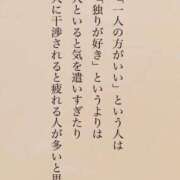 「一人の方がいい」という人は
「独りが好き」というよりは
人といると気を遣いすぎたり
人に干渉されると疲れる人が多いと思